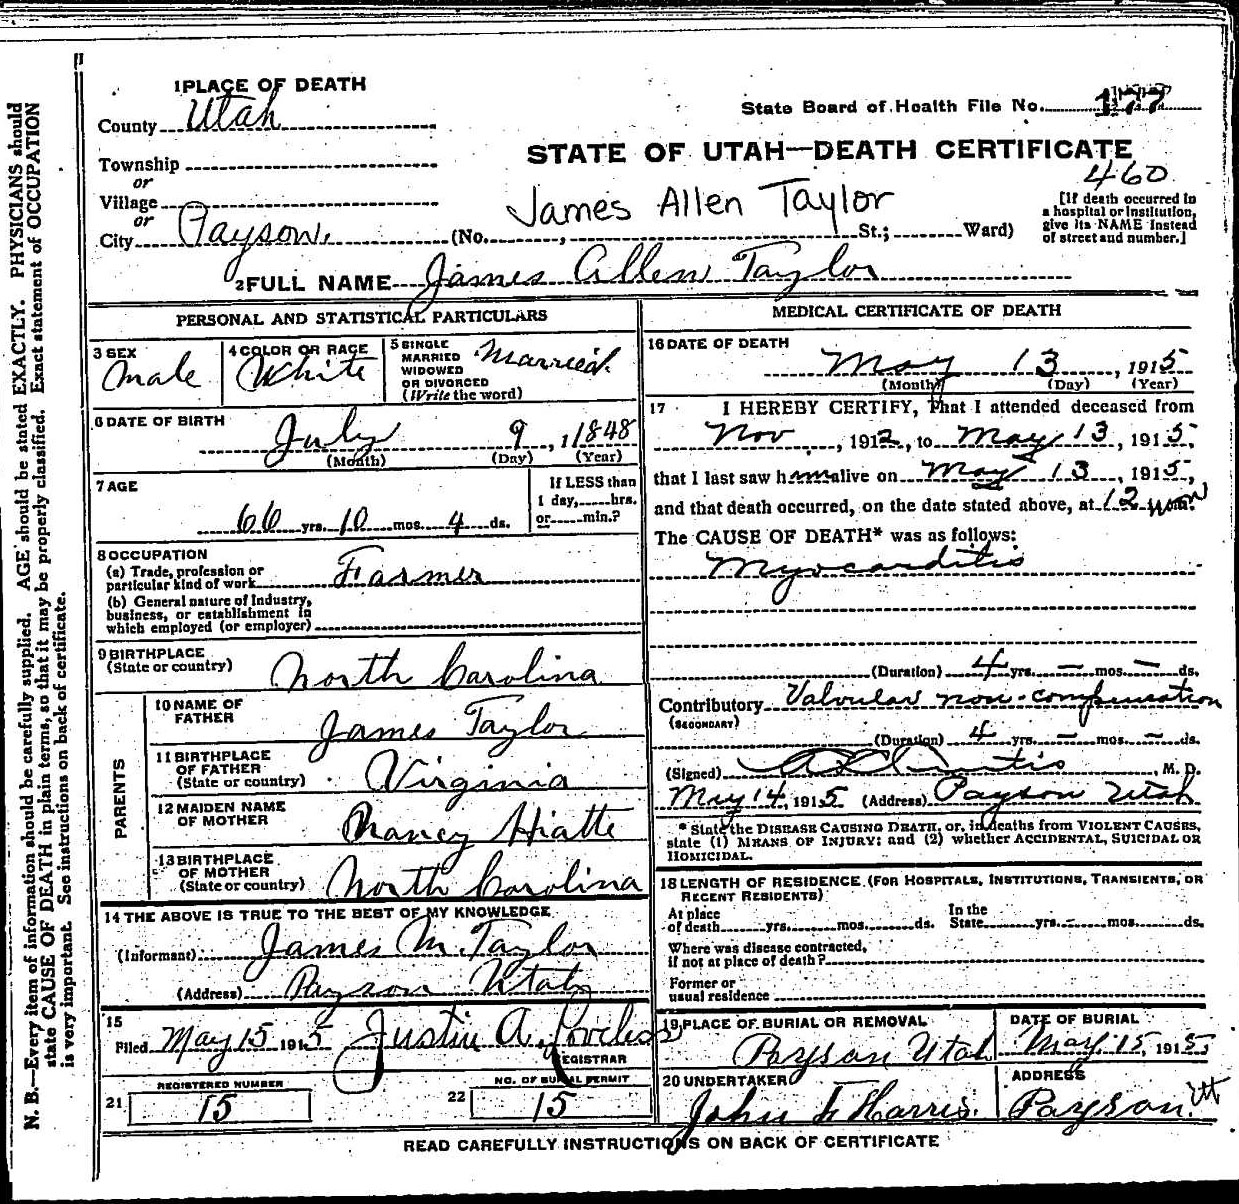 1 PLACE OF DEATH
County Utah
Township
or
Village
or
City Payson. (No. , St.; Ward)
State Board of Health File No. 177
STATE OF UTAH—DEATH CERTIFICATE
460
James Allen Taylor
[If death occurred in
a hospital or institution,
give its NAME instead
of street and number.]
2 FULL NAME James Allen Taylor
PERSONAL AND STATISTICAL PARTICULARS
3 SEX
Male
4 COLOR OR RACE
White
5 SINGLE
MARRIED
WIDOWED
OR DIVORCED
(Write the word)
Married.
6 DATE OF BIRTH
July 9, 1848
(Month) (Day) (Year)
7 AGE
66 yrs. 10 mos. 4 ds.
If LESS than
1 day, hrs.
or min.?
8 OCCUPATION
(a) Trade, profession or
particular kind of work Farmer
(b) General nature of Industry,
business, or establishment in
which employed (or employer)
9 BIRTHPLACE
(State or country) North Carolina
PARENTS
10 NAME OF
FATHER James Taylor
11 BIRTHPLACE
OF FATHER
(State or country) Virginia
12 MAIDEN NAME
OF MOTHER Nancy Hiatte
13 BIRTHPLACE
OF MOTHER
(State or country) North Carolina
14 THE ABOVE IS TRUE TO THE BEST OF MY KNOWLEDGE
(Informant) James M. Taylor
(Address) Payson Utah
15
Filed May 15 1915 Justin A. Loveless
REGISTRAR
REGISTERED NUMBER
21 15
NO. OF BURIAL PERMIT
22 15
MEDICAL CERTIFICATE OF DEATH
16 DATE OF DEATH
May 13, 1915
(Month) (Day) (Year)
17 I HEREBY CERTIFY, That I attended deceased from
Nov, 1912, to May 13, 1915,
that I last saw him alive on May 13, 1915,
and that death occurred, on the date stated above, at 12 noon
The CAUSE OF DEATH* was as follows:
Myocarditis
(Duration) 4 yrs. — mos. — ds.
Contributory Valvular non-compensation
(SECONDARY)
(Duration) 4 yrs. — mos. — ds.
(Signed) Curtis, M. D.
May 14, 1915 (Address) Payson Utah
* State the DISEASE CAUSING DEATH, or, in deaths from VIOLENT CAUSES,
state (1) MEANS OF INJURY; and (2) whether ACCIDENTAL, SUICIDAL OR
HOMICIDAL.
18 LENGTH OF RESIDENCE (FOR HOSPITALS, INSTITUTIONS, TRANSIENTS, OR
RECENT RESIDENTS)
At place
of death yrs. mos. ds.
In the
State yrs. mos. ds.
Where was disease contracted,
if not at place of death?
Former or
usual residence
19 PLACE OF BURIAL OR REMOVAL
Payson Utah
DATE OF BURIAL
May 15, 1915
20 UNDERTAKER
John F Harris.
ADDRESS
Payson. Ut
READ CAREFULLY INSTRUCTIONS ON BACK OF CERTIFICATE
N. B.—Every item of information should be carefully supplied. AGE should be stated EXACTLY. PHYSICIANS should
state CAUSE OF DEATH in plain terms, so that it may be properly classified. Exact statement of OCCUPATION
is very important. See instructions on back of certificate.